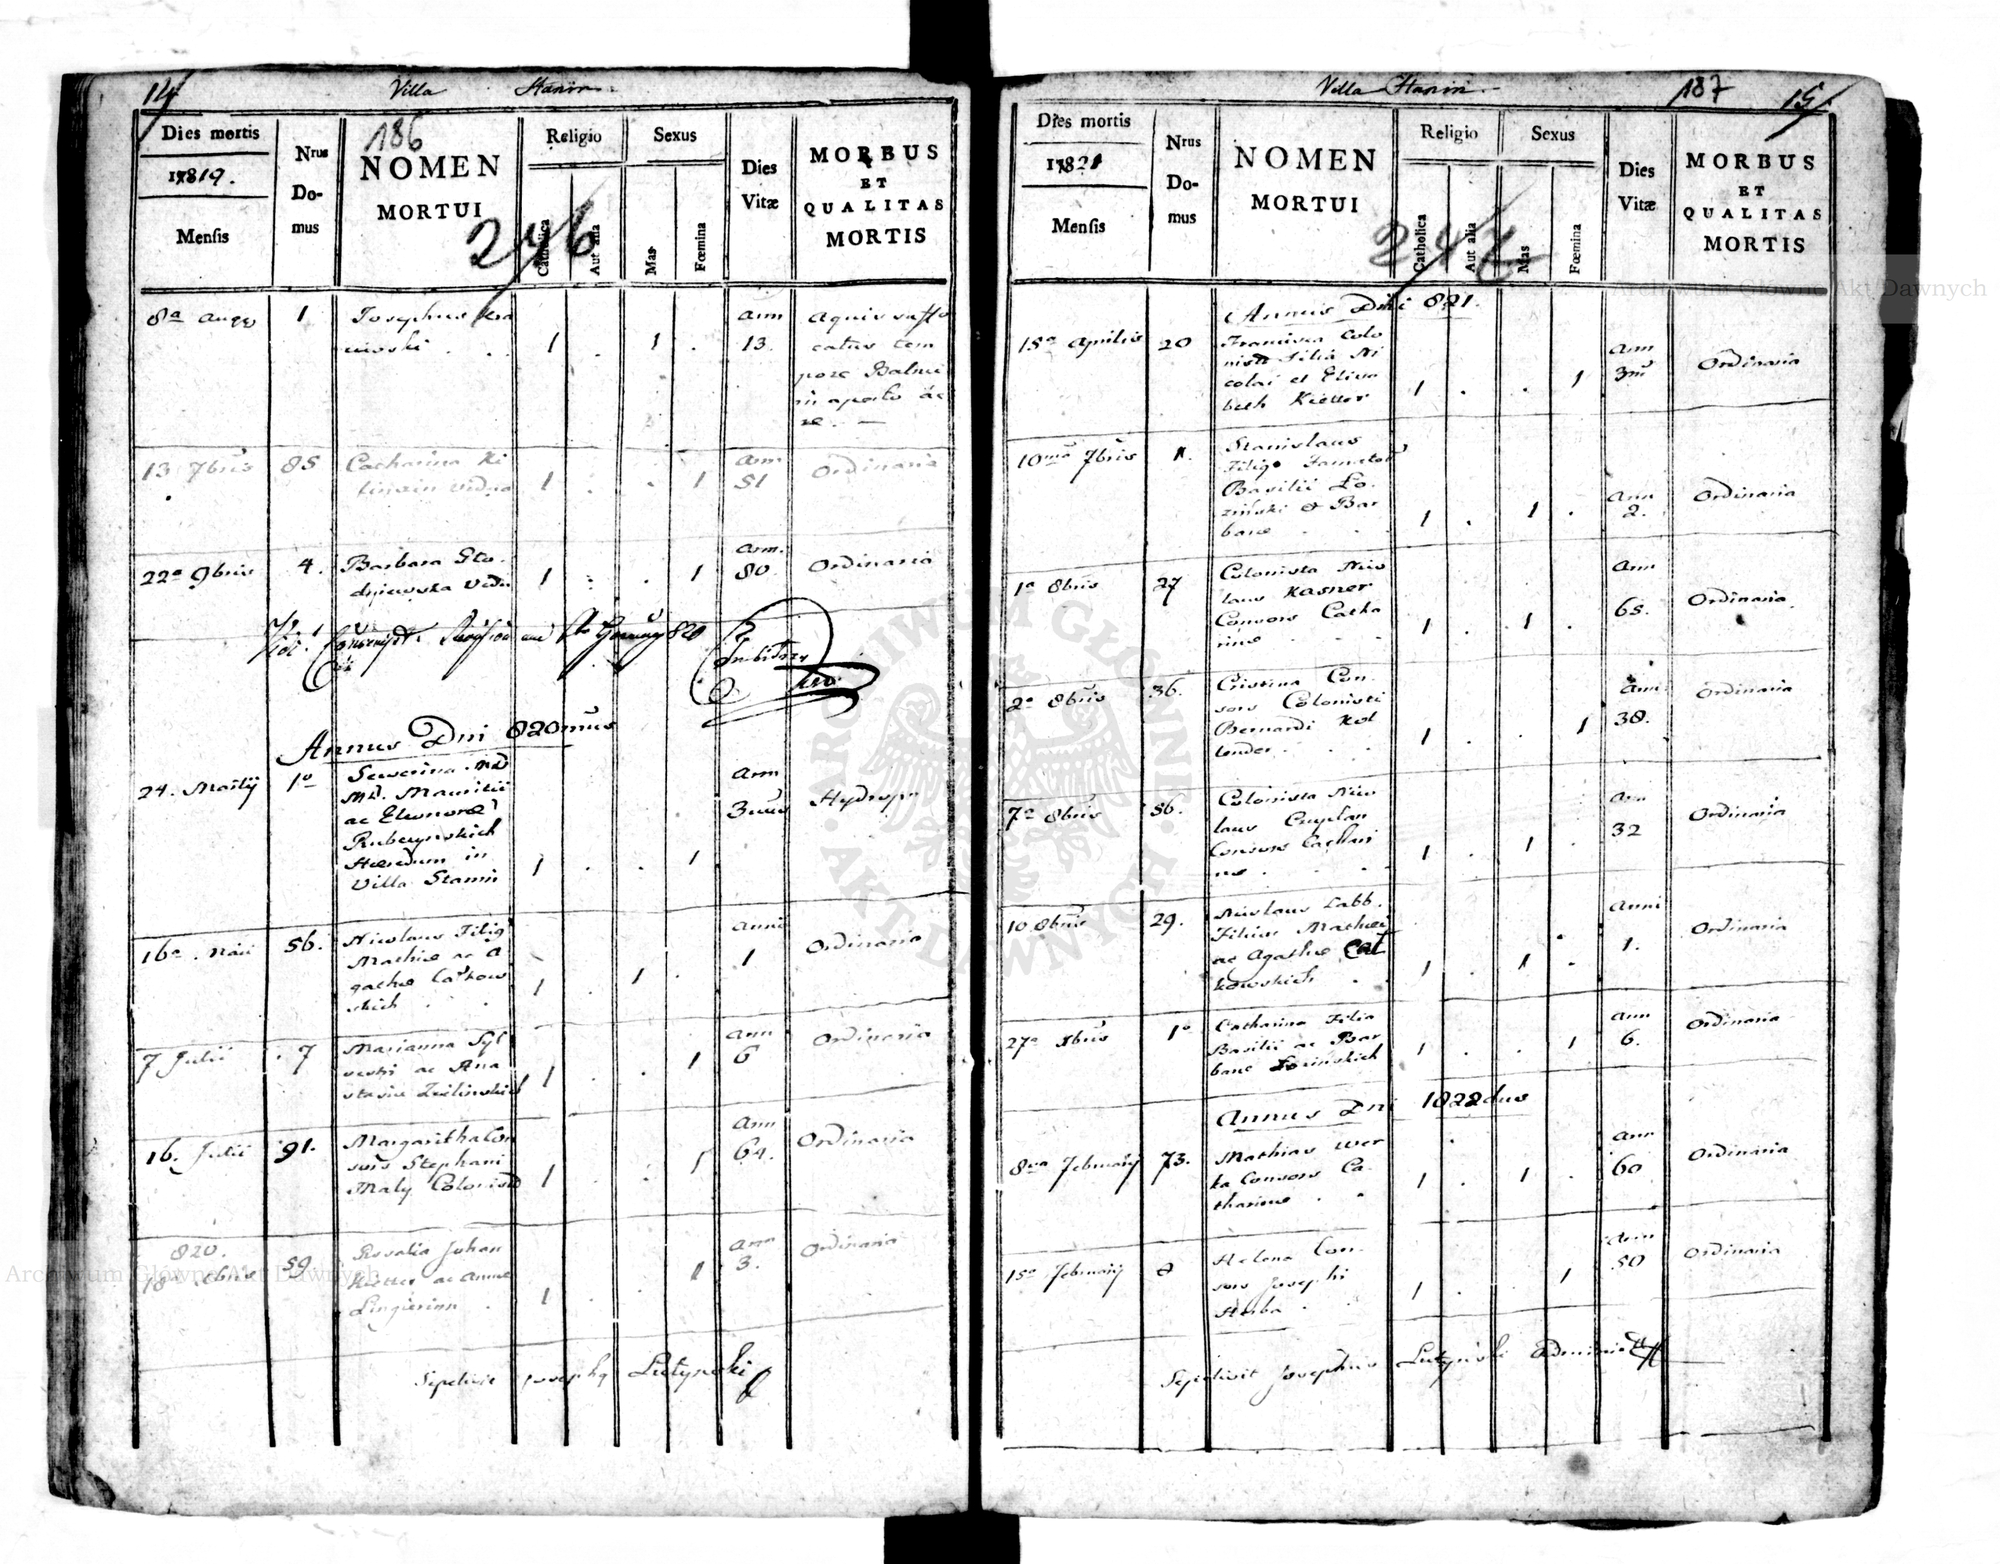 14
Villa Stanin
186
Dies mortis
17819.
Mensis
Nrus
Do-
mus
NOMEN
MORTUI
246
Religio
Catholica
Aut alia
Sexus
Mas
Fœmina
Dies
Vitæ
MORBUS
ET
QUALITAS
MORTIS
8a Aug
1
Josephus
1 . 1 .
ann
13.
Aquis suffo
catus tem
pore Balnei
in aperto ae
re. —
13 7bris
85
Catharina Ki
vidua
1 . . 1
ann
51
Ordinaria
22a 9bris
4.
Barbara Sto
dniewska vidu
1 . . 1
ann.
80.
Ordinaria
Annus Dni 820mus
24. Martij
1o
Severina
Md. Mauritii
ac Eleonore
Haeredum in
Villa Stanin
1 . . 1
ann
3
Hydrops
16a Maii
56.
Nicolaus Filig
Mathie ac A
gathe Catkow
skich
1 . 1 .
Anni
1
Ordinaria
7 Julii
7
Marianna Syl
vestri ac Ana
stasie Zielinskich
1 . . 1
ann
6
Ordinaria
16. Julii
91.
Margaritha Con
sors Stephani
Maly Colonist
1 . . 1
ann
64.
Ordinaria
820.
18a
59
Rosalia Johan
ac Anne
1 . . 1
ann
3.
Ordinaria
Sepelivit Joseph Lutynski
Villa Stanin
187
15
Dies mortis
17821
Mensis
Nrus
Do-
mus
NOMEN
MORTUI
247
Religio
Catholica
Aut alia
Sexus
Mas
Fœmina
Dies
Vitæ
MORBUS
ET
QUALITAS
MORTIS
Annus Dni 821.
15a Aprilis
20
Francisca Colo
nist Filia Ni
colai et Elisa
beth
1 . . 1
ann
3
Ordinaria
10ma 7bris
1.
Stanislaus
Filig Famator
Basilii Lo
zinski et Bar
bare
1 . 1 .
ann
2.
Ordinaria
1a 8bris
27
Colonista Nico
laus Kasner
Consors Catha
rine
1 . 1 .
ann
65.
Ordinaria
2a 8bris
36.
Cristina Con
sors Colonisti
Bernardi Kol
lender
1 . . 1
ann
38.
Ordinaria
7a 8bris
56.
Colonista Nico
laus
Consors Cathari
ne
1 . 1 .
ann
32
Ordinaria
10 8bris
29.
Nicolaus Labb.
Filius Mathei
ac Agathe Cat
kowskich
1 . 1 .
Anni
1.
Ordinaria
27a 8bris
1o
Catharina Filia
Basilii ac Bar
bare Lozinskich
1 . . 1
ann
6.
Ordinaria
Annus Dni 1822dus
8va February
73.
Mathias Wer
ka Consors Ca
tharine
1 . 1 .
ann
60
Ordinaria
15a February
8
Helena Con
sors Josephi
Herba
1 . . 1
ann
50
Ordinaria
Sepelivit Josephus Lutynski
Archiwum Główne Akt Dawnych
ARCHIWUM GŁÓWNE AKT DAWNYCH
Archiwum Główne Akt Dawnych